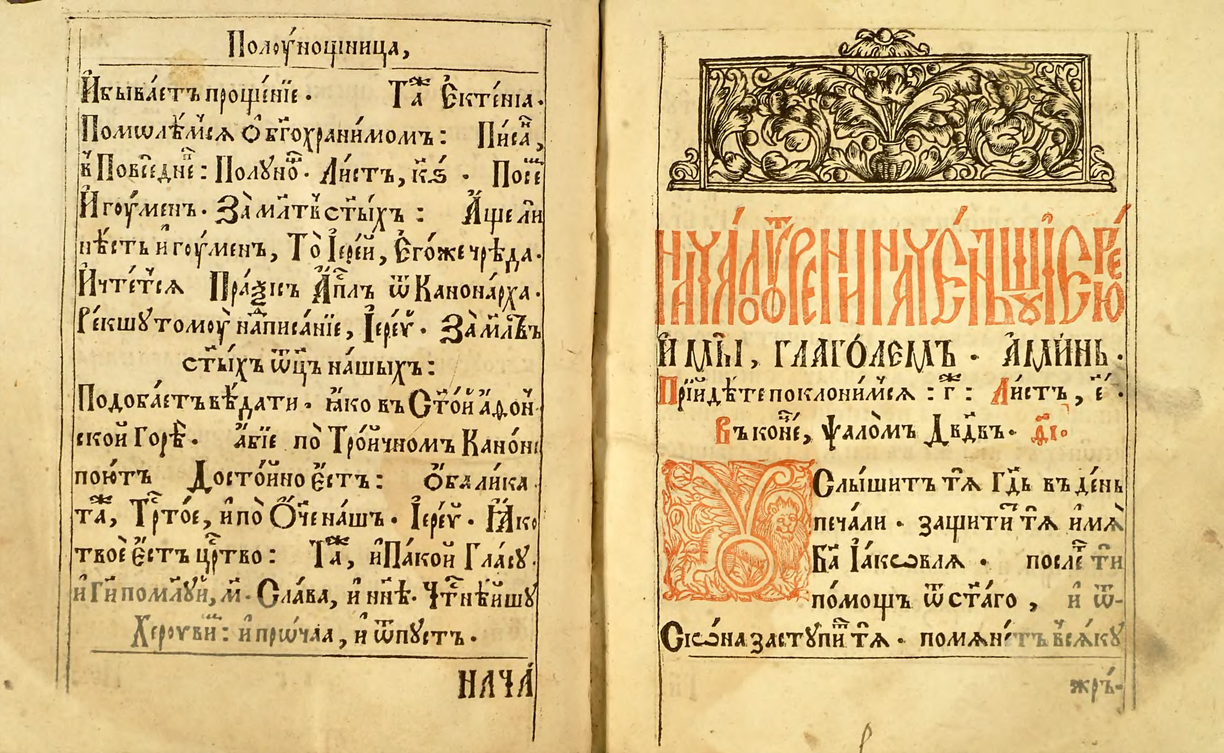 Полоу́нощница,
И҆быва́етъ проще́нїе. Та́ж Е҆кте́нїа.
Помѡлѣ́мсѧ Ѻ҆ бг҃охрани́момъ: Пи́сан,
в Повседне: Полуно. Ли́стъ, к҃ѕ. Посе
И҆гоу́менъ. За̀ мл҃твъ ст҃ы́хъ: А҆́ще ли
нѣ́сть и҆гоу́мен, То̀ І҆ере́й, Е҆го́же чрѣда.
И҆чте́тсѧ Пра́ѯисъ А҆пⷭ҇лъ ѿ Канона́рха.
Ре́кшу томоу̀ написа́нїе, І҆ере́ѵ. За̀ мл҃твъ
ст҃ы́хъ ѻ҆ц҃ъ на́шыхъ:
Подоба́етъ вѣ́дати. ꙗ҆́ко въ Ст҃о́й а҆фон
ской Горѣ̀. а҆́бїе по Тро́ичномъ Кано́нѣ
пою́тъ Досто́йно е҆́стъ: Ѻ҆балика.
та́ж, Трⷭ҇то́е, и҆ по Ѻ҆́че на́шъ. І҆ере́ѵ. Ꙗ҆́ко
твоѐ е҆́стъ црⷭ҇тво: Та́ж, и҆ Па́кой Гла́су.
и҆ Гдⷭ҇и поми́луй, м҃. Сла́ва, и҆ нн҃ѣ. Чтⷭ҇нѣ́йшу
Хероуви́м: и҆ про́чаа, и҆ ѿпу́стъ.
НАЧА́
НАЧА́ЛО У҆́ТРЕНИ ГЛЮ́ЩУ І҆ЕРЕ́Ю
И҆ МЫ̀, ГЛАГО́ЛЕМЪ. А҆МИ́НЬ.
Прїйдѣ́те поклони́мсѧ: г҃: Ли́стъ, є҃.
В конец, ѱало́мъ Дв҃двъ. ѳ҃і.
Услы́шитъ тѧ̀ Гдⷭ҇ь въ де́нь
печа́ли. защи́титъ тѧ̀ и҆́мѧ
Бг҃а І҆а́кѡвлѧ. по́слетъ ти
по́мощъ ѿ ст҃а́го, и҆ ѿ
Сиѡ́на засту́питъ тѧ̀. помѧне́тъ всѧ́ку
жрь́-